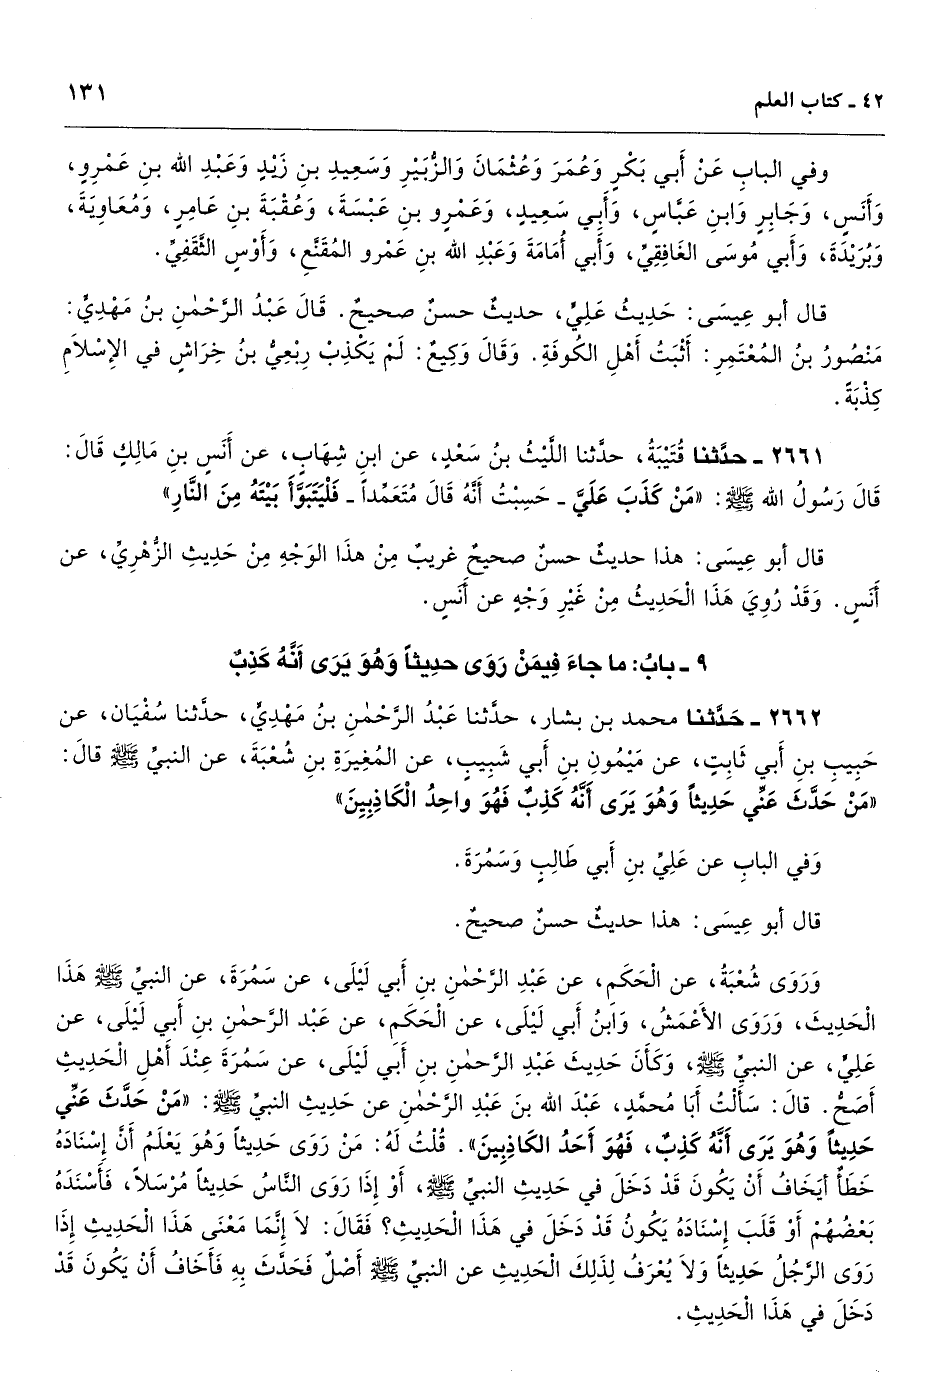 ٤٢ ـ كتاب العلم ١٣١
وفي البابِ عَنْ أَبي بَكْرٍ وَعُمَرَ وَعُثْمَانَ وَالزُّبَيْرِ وَسَعِيدِ بنِ زَيْدٍ وَعَبْدِ الله بنِ عَمْرٍو،
وَأَنَسٍ، وَجَابِرٍ وَابنِ عَبَّاسٍ، وَأَبي سَعِيدٍ، وَعَمْرِو بنِ عَبْسَةَ، وَعُقْبَةَ بنِ عامِرٍ، وَمُعَاوِيَةَ،
وَبُرَيْدَةَ، وَأَبي مُوسَى الغَافِقِيِّ، وَأَبي أُمَامَةَ وَعَبْدِ الله بنِ عَمْرو المُقَنَّعِ، وَأَوْسٍ الثَّقَفِيِّ.
قال أبو عِيسَى: حَدِيثُ عَلِيٍّ، حديثٌ حسنٌ صحيحٌ. قَالَ عَبْدُ الرَّحْمٰنِ بنُ مَهْدِيٍّ:
مَنْصُورُ بنُ المُعْتَمِرِ: أَثْبَتُ أَهْلِ الكُوفَةِ. وَقَالَ وَكِيعٌ: لَمْ يَكْذِبْ رِبْعِيُّ بنُ خِرَاشٍ في الإِسْلاَمِ
كِذْبَةً.
٢٦٦١ ـ حدَّثنا قُتَيْبَةُ، حدَّثنا اللَّيْثُ بنُ سَعْدٍ، عن ابنِ شِهَابٍ، عن أَنَسِ بنِ مَالِكٍ قَالَ:
قَالَ رَسُولُ الله ﷺ: «مَنْ كَذَبَ عَلَيَّ ـ حَسِبْتُ أَنَّهُ قَالَ مُتَعَمِّداً ـ فَلْيَتَبَوَّأْ بَيْتَهُ مِنَ النَّارِ»
قال أبو عِيسَى: هذا حديثٌ حسنٌ صحيحٌ غريبٌ مِنْ هذا الوَجْهِ مِنْ حَدِيثِ الزُّهْرِيِّ، عن
أَنَسٍ. وَقَدْ رُوِيَ هَذَا الْحَدِيثُ مِنْ غَيْرِ وَجْهٍ عن أَنَسٍ.
٩ ـ بابُ: ما جاءَ فِيمَنْ رَوَى حديِثاً وَهُوَ يَرَى أَنَّهُ كَذِبٌ
٢٦٦٢ ـ حَدَّثنا محمد بن بشار، حدَّثنا عَبْدُ الرَّحْمٰنِ بنُ مَهْدِيٍّ، حدَّثنا سُفْيَان، عن
حَبِيبِ بنِ أَبي ثَابِتٍ، عن مَيْمُونِ بنِ أَبي شَبِيبٍ، عن المُغِيرَةِ بنِ شُعْبَةَ، عن النبيِّ ﷺ قالَ:
«مَنْ حَدَّثَ عَنِّي حَدِيثاً وَهُوَ يَرَى أَنَّهُ كَذِبٌ فَهُوَ واحِدُ الْكَاذِبِينَ»
وَفي البابِ عن عَلِيِّ بنِ أَبي طَالِبٍ وَسَمُرَةَ.
قال أبو عِيسَى: هذا حديثٌ حسنٌ صحيحٌ.
وَرَوَى شُعْبَةُ، عن الْحَكَمِ، عن عَبْدِ الرَّحْمٰنِ بنِ أَبي لَيْلَى، عن سَمُرَةَ، عن النبيِّ ﷺ هَذَا
الْحَدِيثَ، وَرَوَى الأَعْمَشُ، وَابنُ أَبي لَيْلَى، عن الْحَكَمِ، عن عَبْد الرَّحمٰنِ بنِ أَبي لَيْلَى، عن
عَلِيٍّ، عن النبيِّ ﷺ، وَكَأَنَ حَدِيثَ عَبْدِ الرَّحمٰنِ بنِ أَبي لَيْلَى، عن سَمُرَةَ عِنْدَ أَهْلِ الْحَدِيثِ
أَصَحُّ. قالَ: سَأَلْتُ أَبَا مُحمَّدٍ، عَبْدَ الله بنَ عَبْدِ الرَّحْمٰنِ عن حَدِيثِ النبيِّ ﷺ: «مَنْ حَدَّثَ عَنِّي
حَدِيثاً وَهُوَ يَرَى أَنَّهُ كَذِبٌ، فَهُوَ أَحَدُ الكَاذِبِينَ». قُلْتُ لَهُ: مَنْ رَوَى حَدِيثاً وَهُوَ يَعْلَمُ أَنَّ إِسْنَادَهُ
خَطَأٌ أيَخَافُ أَنْ يَكُونَ قَدْ دَخَلَ في حَدِيثِ النبيِّ ﷺ، أَوْ إِذَا رَوَى النَّاسُ حَدِيثاً مُرْسَلاً، فَأَسْنَدَهُ
بَعْضُهُمْ أَوْ قَلَبَ إِسْنَادَهُ يَكُونُ قَدْ دَخَلَ في هَذَا الْحَدِيثِ؟ فَقَالَ: لاَ إِنَّمَا مَعْنَى هَذَا الْحَدِيثِ إِذَا
رَوَى الرَّجُلُ حَدِيثاً وَلاَ يُعْرَفُ لِذَلِكَ الْحَدِيثِ عن النبيِّ ﷺ أَصْلٌ فَحَدَّثَ بِهِ فَأَخَافُ أَنْ يَكُونَ قَدْ
دَخَلَ في هَذَا الْحَدِيثِ.